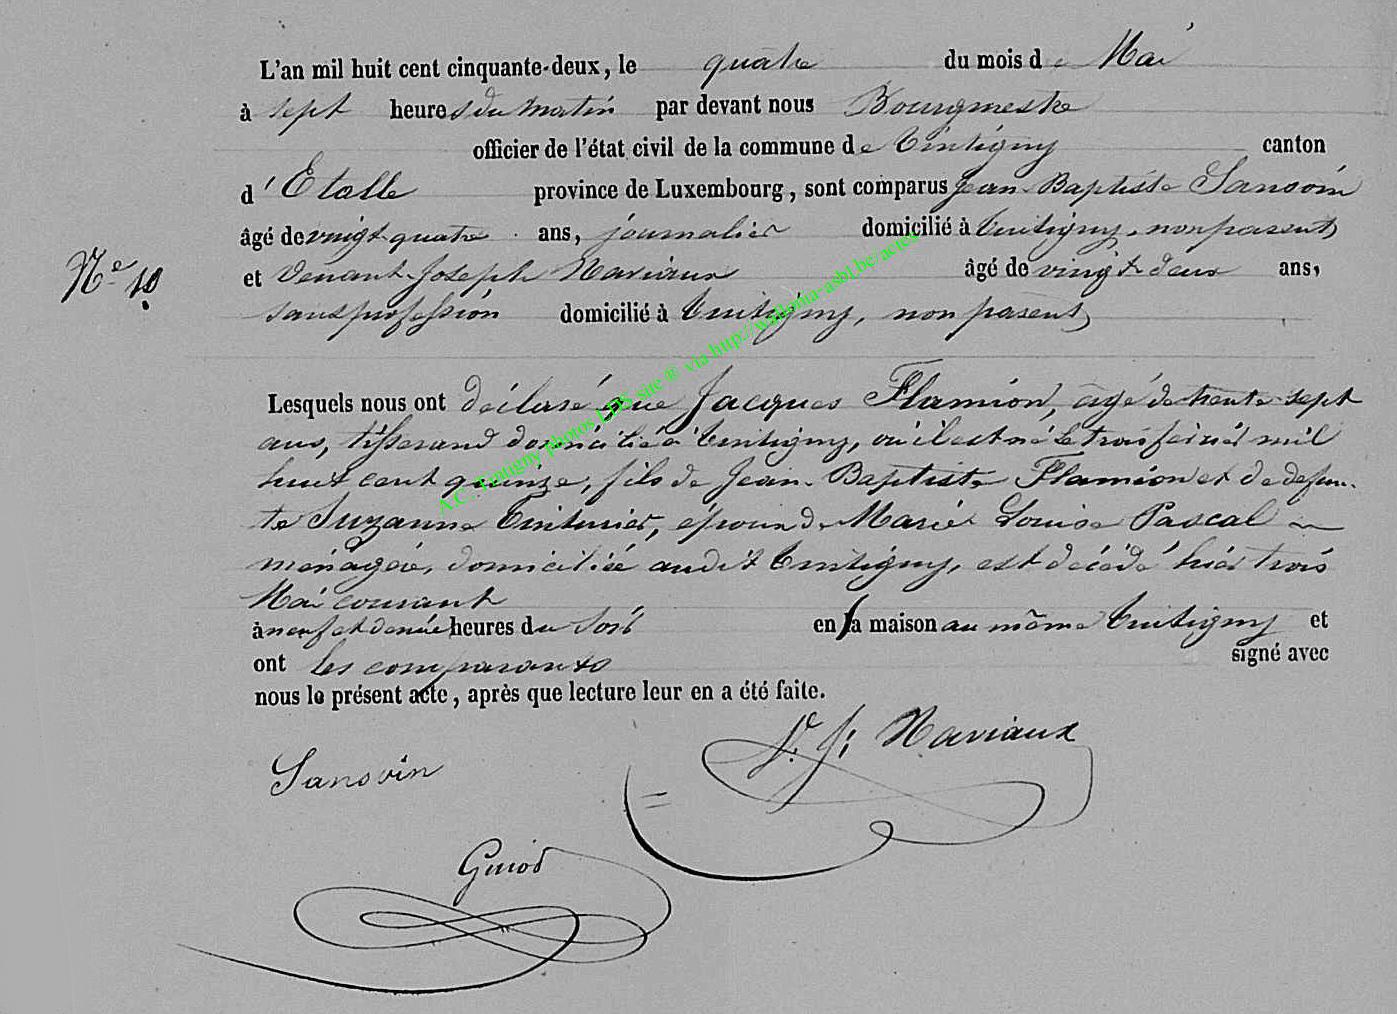 L'an mil huit cent cinquante-deux, le quatre du mois de Mai
à sept heures du matin par devant nous Bourgmestre
officier de l'état civil de la commune de Tintigny canton
d'Etalle province de Luxembourg, sont comparus Jean-Baptiste Sansvin
âgé de vingt quatre ans, journalier domicilié à Tintigny, non parent
N° 10
et Venant-Joseph Naviaux âgé de vingt deux ans,
sans profession domicilié à Tintigny, non parent,
Lesquels nous ont déclaré que Jacques Flamion, âgé de trente-sept
ans, tisserand domicilié à Tintigny, où il est né le trois février mil
huit cent quinze, fils de Jean-Baptiste Flamion et de defun-
te Suzanne Tinturier, époux de Marie Louise Pascal
ménagère, domiciliée audit Tintigny, est décédé hier trois
Mai courant
à neuf et demie heures du soir en la maison au même Tintigny et
ont les comparants signé avec
nous le présent acte, après que lecture leur en a été faite.
V. J. Naviaux
Sansvin
Guiot
A.C. Tintigny photos LDS site ® via http://wallonia-asbl.be/actes